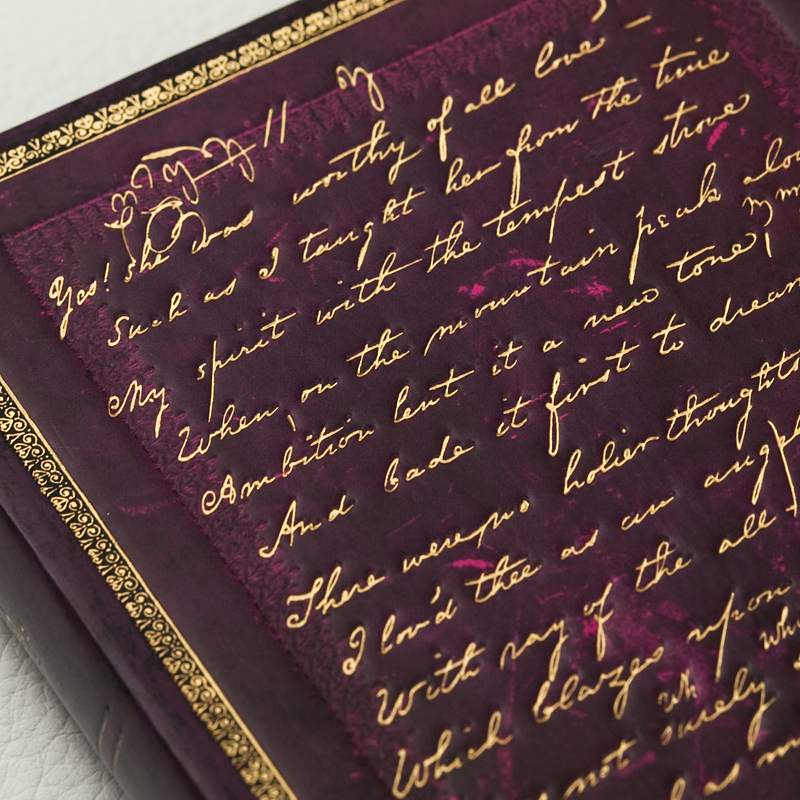 Yes! she was worthy of all love –
Such as I taught her from the time
My spirit with the tempest strove
When, on the mountain peak
Ambition lent it a new tone;
And bade it first to dream
There were no holier thoughts
I lov'd thee as an angel
With ray of the all
Which blazes upon
not surely
as